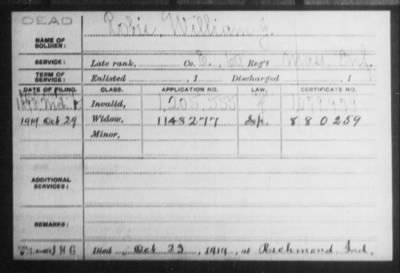 DEAD
NAME OF SOLDIER: Robie, William J.
SERVICE: Late rank, Co. 60 Reg't Inf.
TERM OF SERVICE: Enlisted , 1 Discharged , 1
DATE OF FILING. CLASS. APPLICATION NO. LAW. CERTIFICATE NO.
Invalid, 1,205,555
1919 Oct 29 Widow, 1148277 880259
Minor,
ADDITIONAL SERVICES:
REMARKS:
Died Oct 23, 1919, at Richmond Ind.